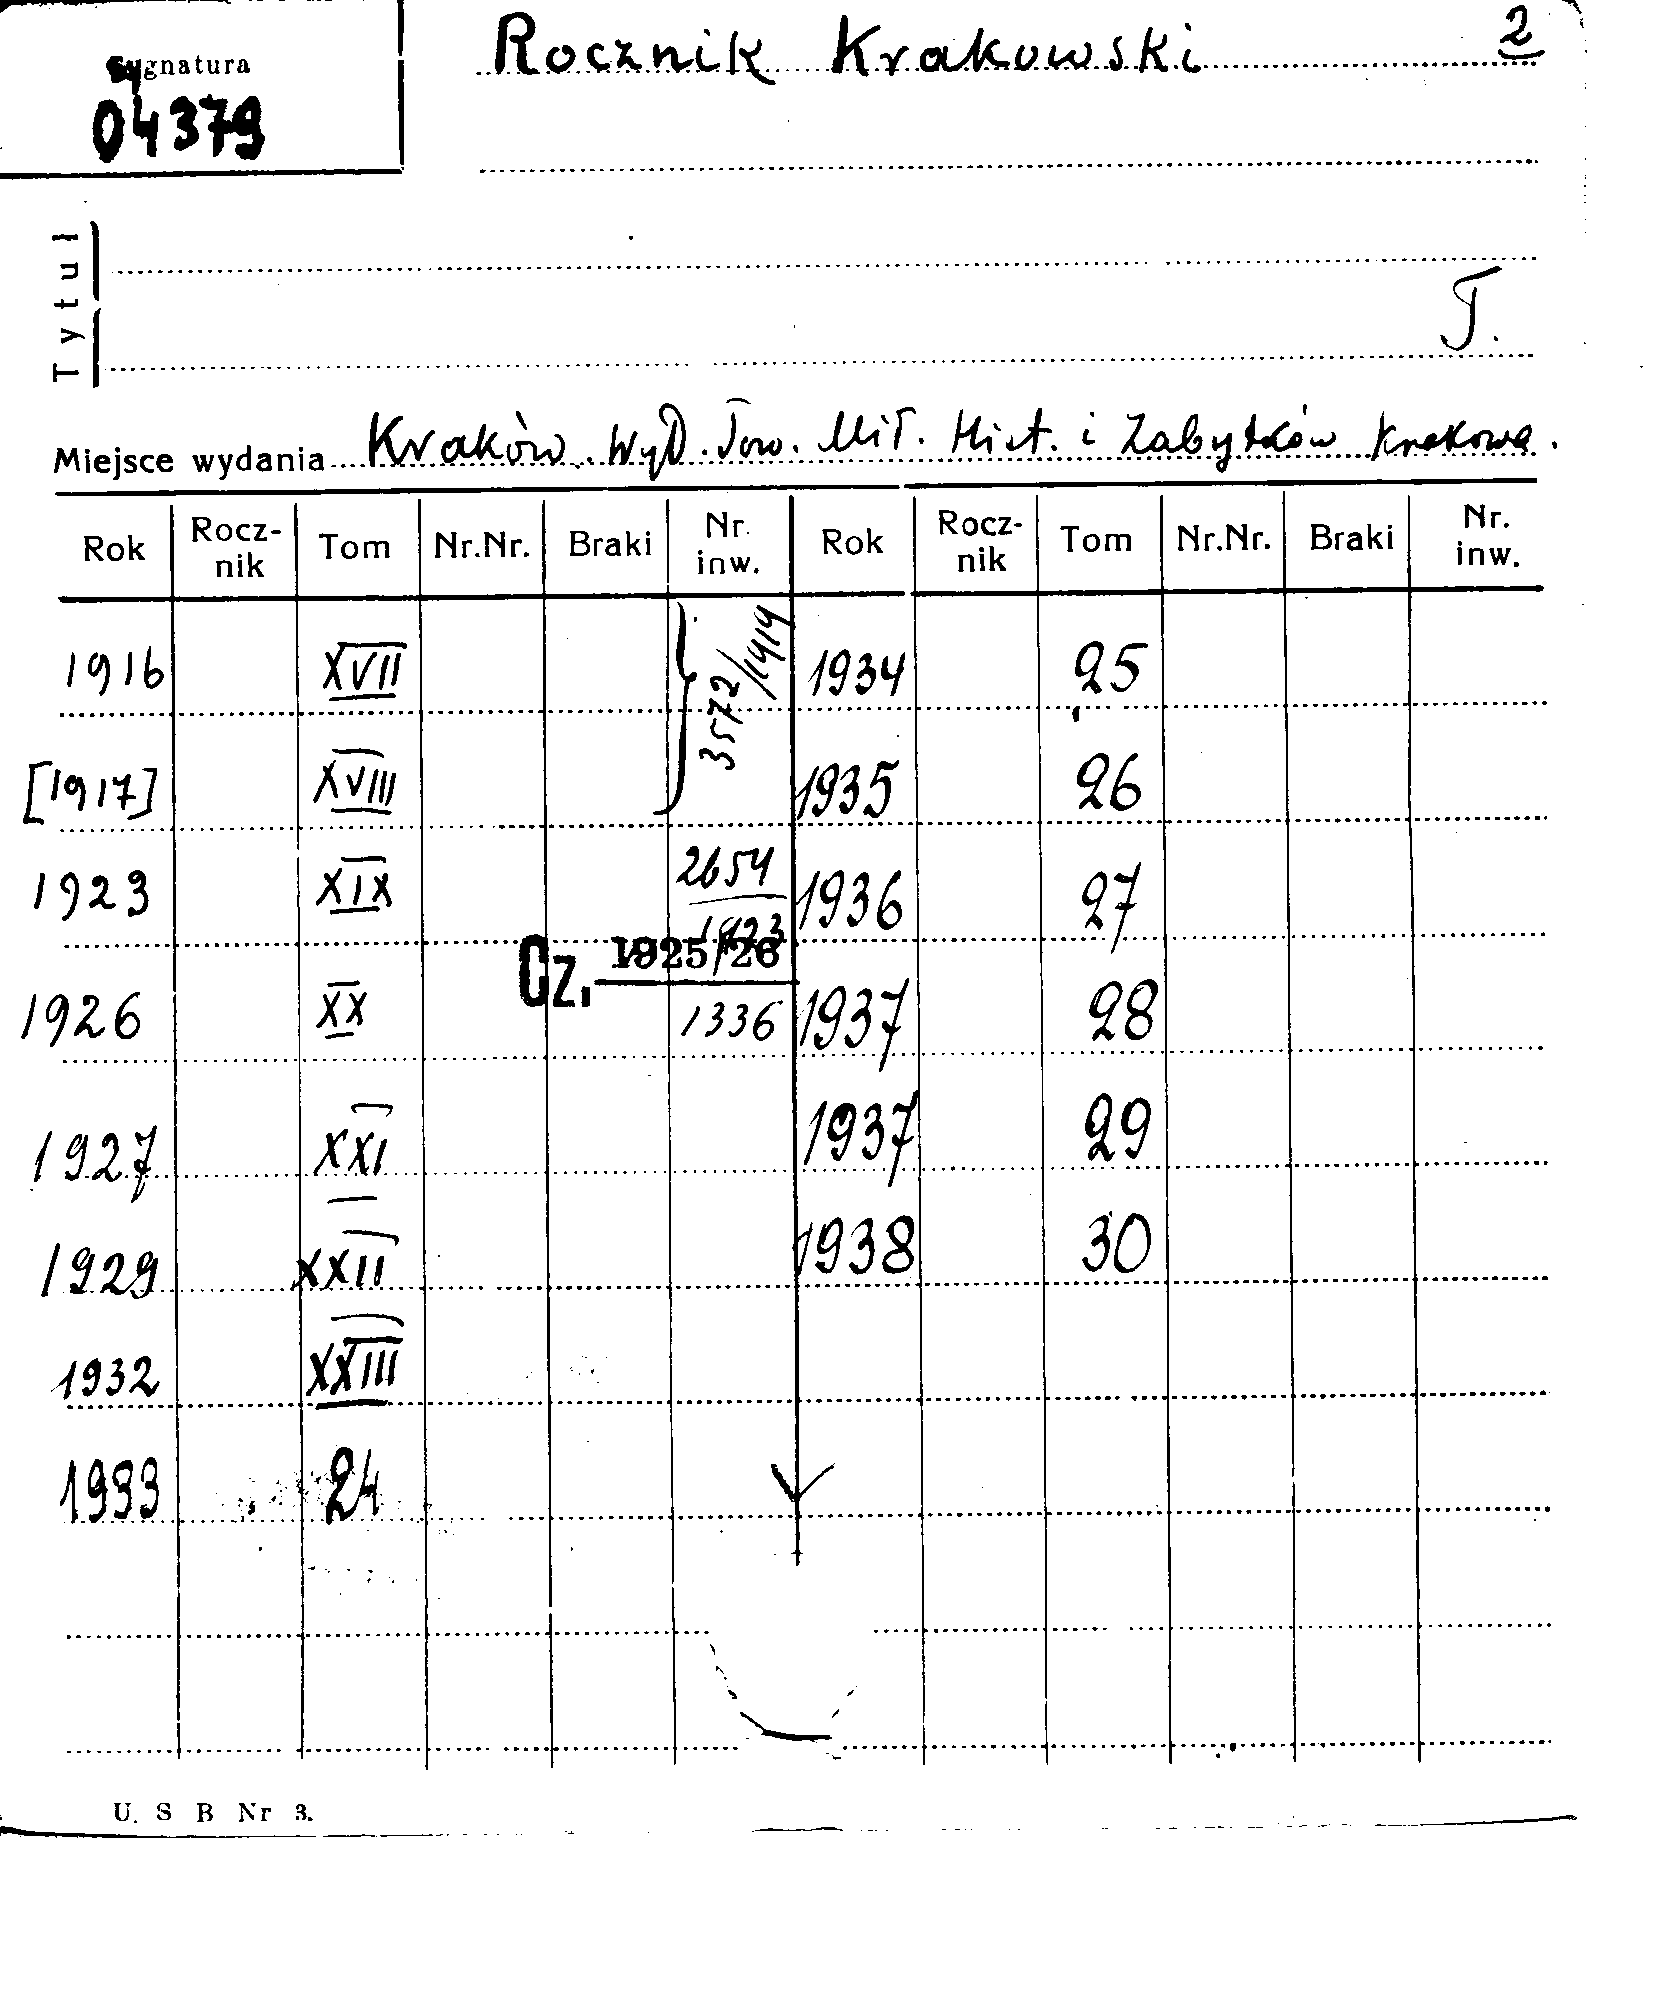 Rocznik Krakowski 2
Sygnatura
04379
Tytuł
T.
Miejsce wydania Kraków. Wyd. Tow. Mił. Hist. i Zabytków Krakowa.
Rok Rocz-nik Tom Nr.Nr. Braki Nr. inw. Rok Rocz-nik Tom Nr.Nr. Braki Nr. inw.
1916 XVII 3572/1919 1934 25
[1917] XVIII 1935 26
1923 XIX 2654/1923 1936 27
1926 XX Cz. 1925/26 1336 1937 28
1927 XXI 1937 29
1929 XXII 1938 30
1932 XXIII
1933 24
U. S B Nr 3.